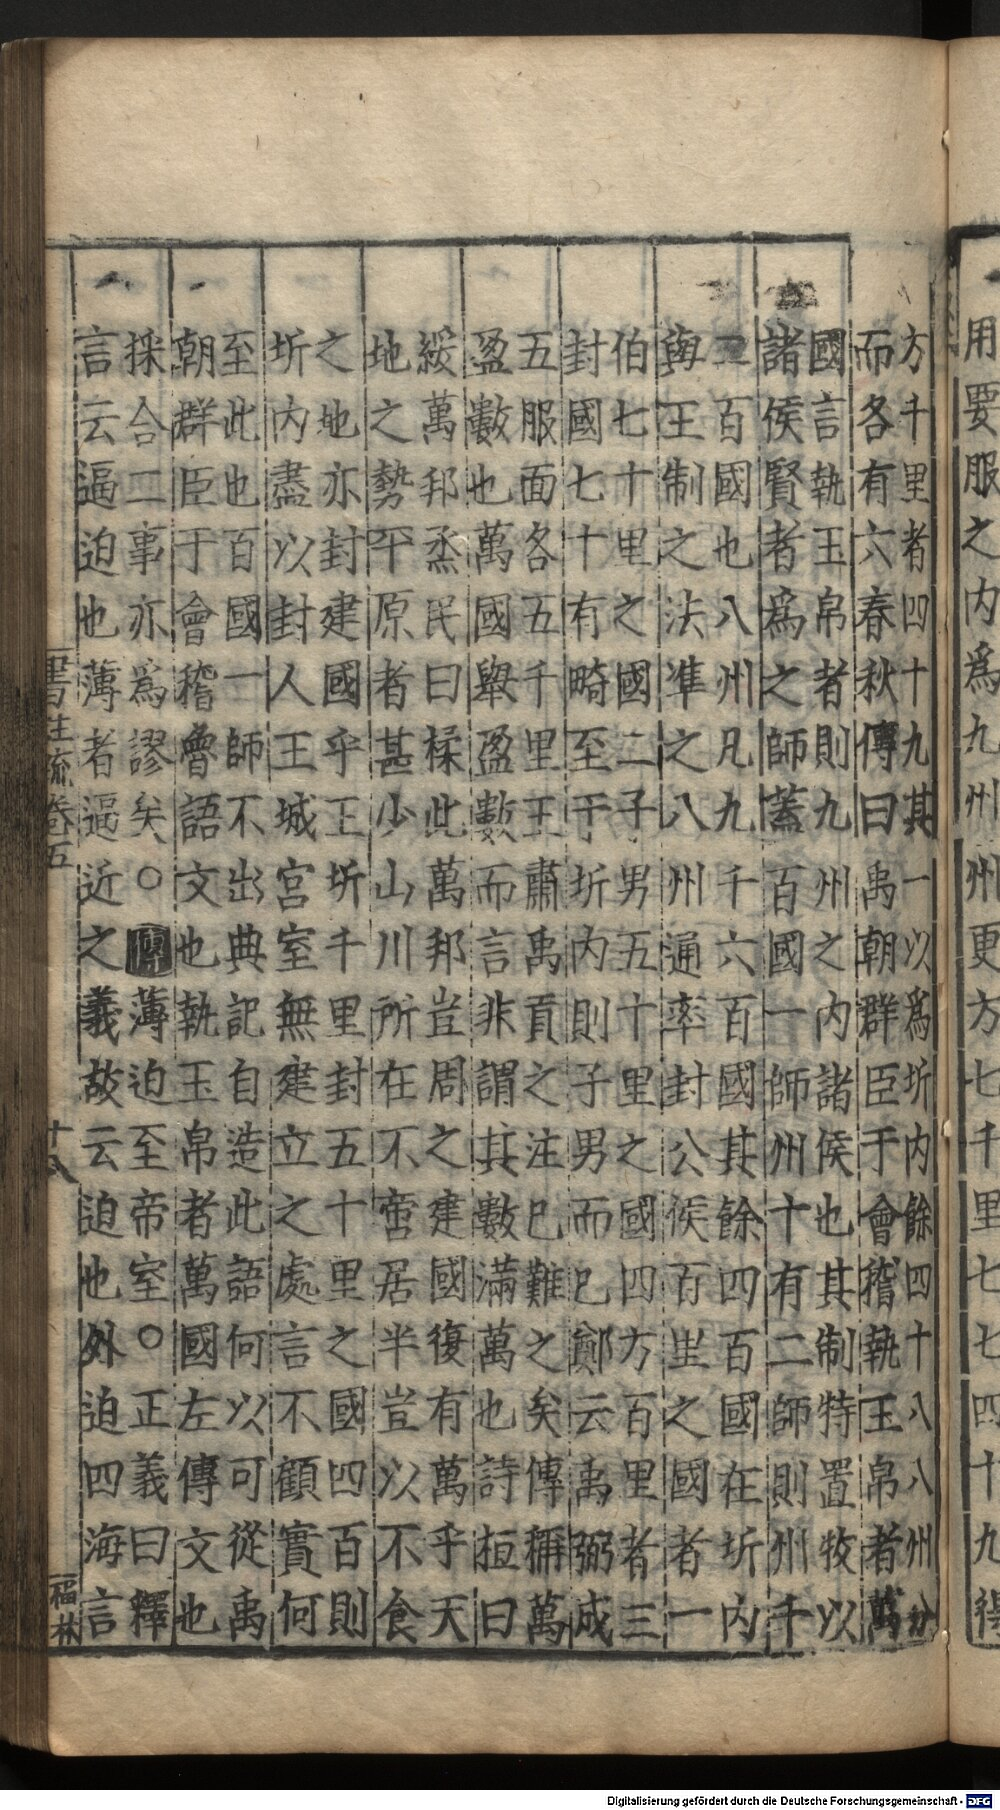 用要服之内爲九州州更方七千里七七四十九得
方千里者四十九其一以爲圻内餘四十八八州分
而各有六春秋傳曰禹朝群臣于會稽執玉帛者萬
國言執玉帛者則九州之内諸侯也其制特置牧以
諸侯賢者爲之師蓋百國一師州十有二師則州千
二百國也八州凡九千六百國其餘四百國在圻内
與王制之法準之八州通率封公侯百里之國者一
伯七十里之國二子男五十里之國四方百里者三
封國七十有畸至于圻内則子男而已鄭云禹弼成
五服面各五千里王肅禹貢之注已難之矣傳稱萬
盈數也萬國舉盈數而言非謂其數滿萬也詩桓曰
綏萬邦烝民曰揉此萬邦豈周之建國復有萬乎天
地之勢平原者甚少山川所在不啻居半豈以不食
之地亦封建國乎王圻千里封五十里之國四百則
圻内盡以封人王城宮室無建立之處言不顧實何
至此也百國一師不出典記自造此語何以可從禹
朝群臣于會稽魯語文也執玉帛者萬國左傳文也
採合二事亦爲謬矣○傳薄迫至帝室○正義曰釋
言云逼迫也薄者逼近之義故云迫也外迫四海言
書注疏卷五
十八
福林
Digitalisierung gefördert durch die Deutsche Forschungsgemeinschaft - DFG